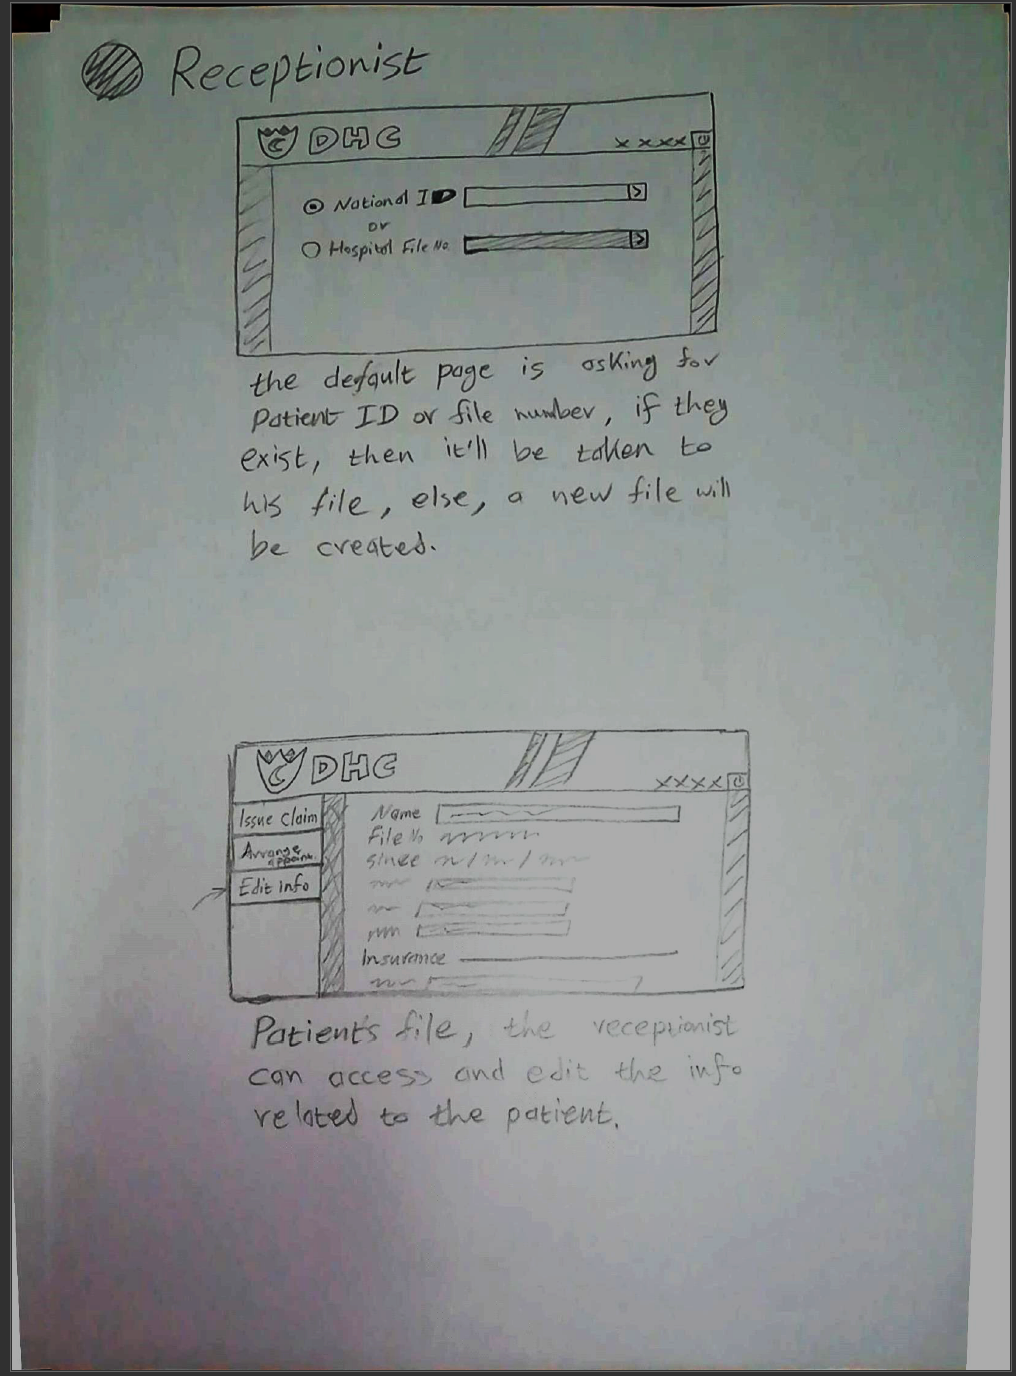 Receptionist
C DHC
xxxx
National ID
or
Hospital File No.
the default page is asking for
Patient ID or file number, if they
exist, then it'll be taken to
his file, else, a new file will
be created.
C DHC
xxxx
Issue Claim
Arrange appoin.
Edit info
Name
File No
since
Insurance
Patient's file, the receptionist
can access and edit the info
related to the patient.